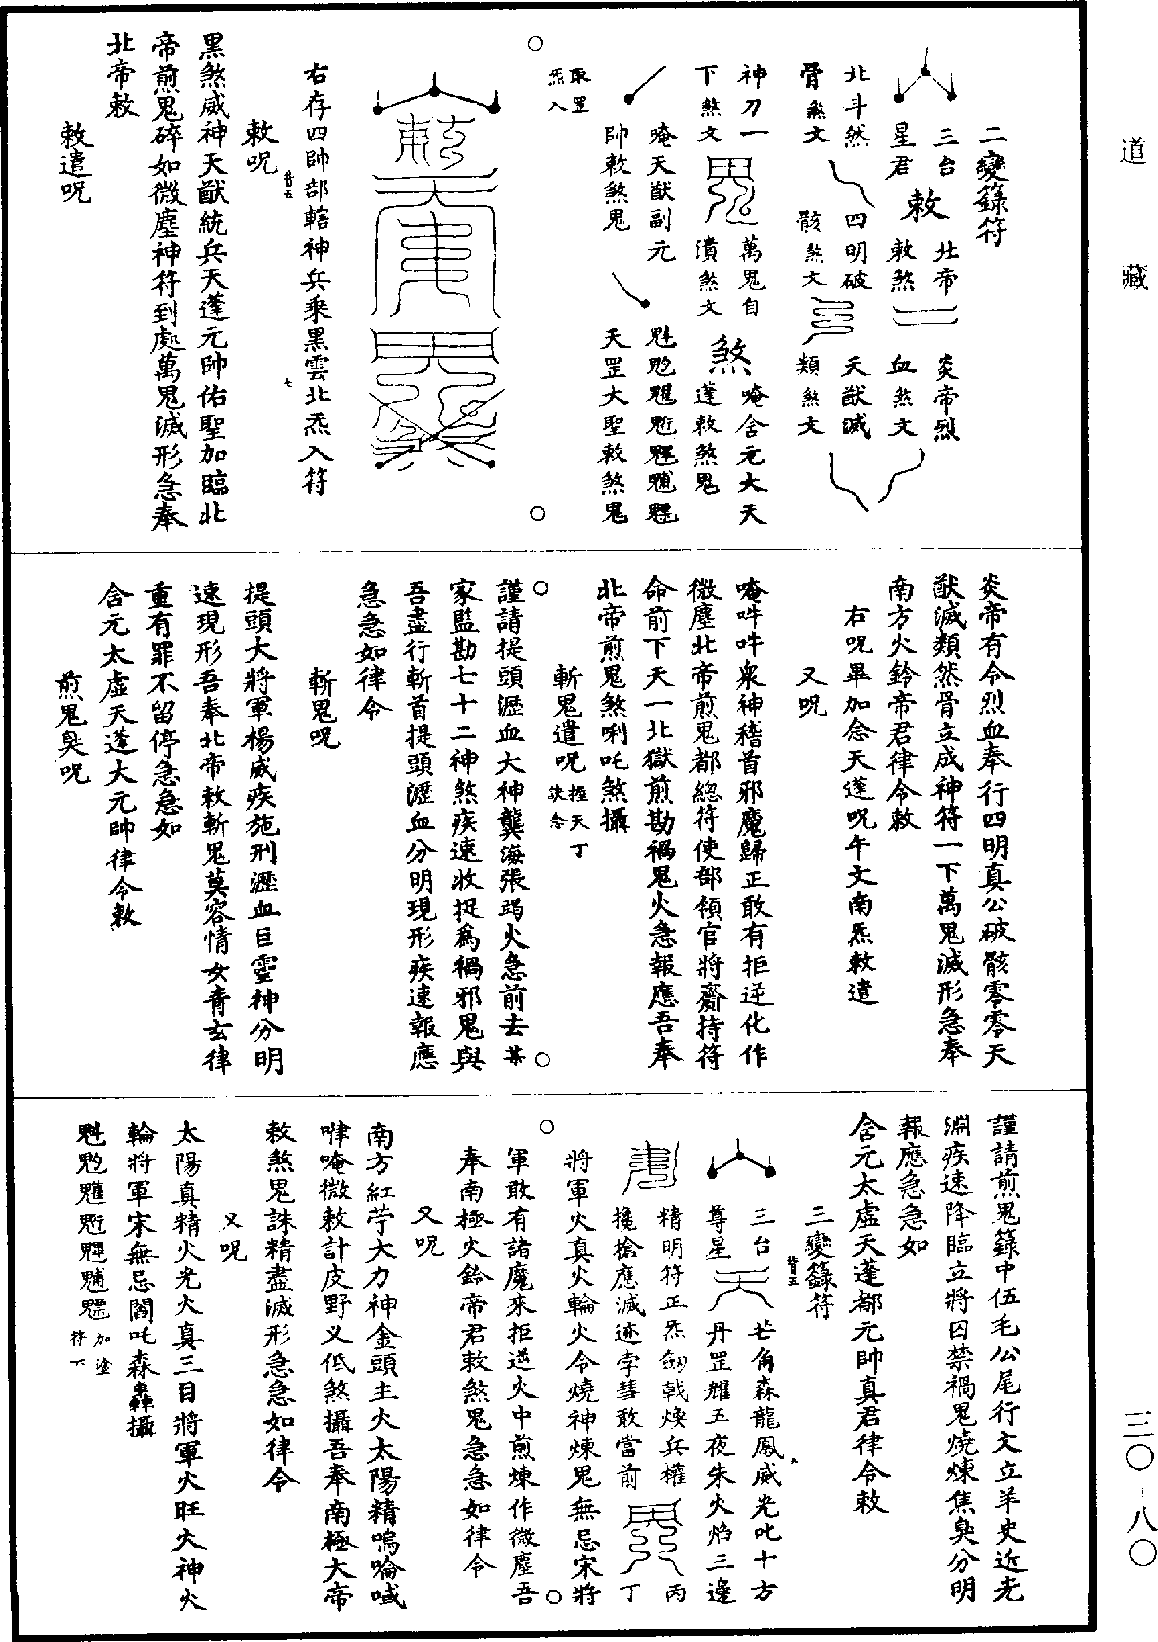 道藏
二變籙符
三台 北帝 炎帝烈
星君 敕 敕煞 血煞文
北斗然 四明破 天猷滅
骨煞文 骸煞文 類煞文
神刀一 萬鬼自 唵含元大天
下煞文 潰煞文 煞 蓬敕煞鬼
唵天猷副元 魁𩲃䰢魓魒䰰魒
帥敕煞鬼 天罡大聖敕煞鬼
取罡
炁入
右存四帥部轄神兵乘黑雲北炁入符
敕呪
黑煞威神天猷統兵天蓬元帥佑聖加臨北
帝煎鬼碎如微塵神符到處萬鬼滅形急奉
北帝敕
敕遣呪
炎帝有令烈血奉行四明真公破骸零零天
猷滅類然骨立成神符一下萬鬼滅形急奉
南方火鈴帝君律令敕
右呪畢加念天蓬呪午文南炁敕遣
又呪
唵吽吽衆神稽首邪魔歸正敢有拒逆化作
微塵北帝煎鬼都總符使部領官將齎持符
命前下天一北獄煎勘禍鬼火急報應吾奉
北帝煎鬼煞唎吒煞攝
斬鬼遣呪 握天丁訣念
謹請提頭瀝血大神龔海張碼火急前去某
家監勘七十二神煞疾速收捉爲禍邪鬼與
吾盡行斬首提頭瀝血分明現形疾速報應
急急如律令
斬鬼呪
提頭大將軍楊威疾施刑瀝血巨靈神分明
速現形吾奉北帝敕斬鬼莫容情女青玄律
重有罪不留停急急如
含元太虛天蓬大元帥律令敕
煎鬼臭呪
謹請煎鬼籙中伍毛公尾行文立羊史近光
淵疾速降臨立將囚禁禍鬼燒煉焦臭分明
報應急急如
含元太虛天蓬都元帥真君律令敕
三變籙符
三台 芒角森龍鳳威光叱十方
尊星 丹罡耀五夜朱火焰三邊
精明符正炁劒戟煥兵權 丙
攙搶應滅迹孛彗敢當前 丁
將軍火真火輪火令燒神煉鬼無忌宋將
軍敢有諸魔來拒逆火中煎煉作微塵吾
奉南極火鈴帝君敕煞鬼急急如律令
又呪
南方紅芋大力神金頭主火太陽精嗚㖮唵
㖹唵微敕計皮野义低煞攝吾奉南極大帝
敕煞鬼誅精盡滅形急急如律令
又呪
太陽真精火光火真三目將軍火旺火神火
輪將軍宋無忌閻吒森轟攝
加塗
符下
三〇-八〇